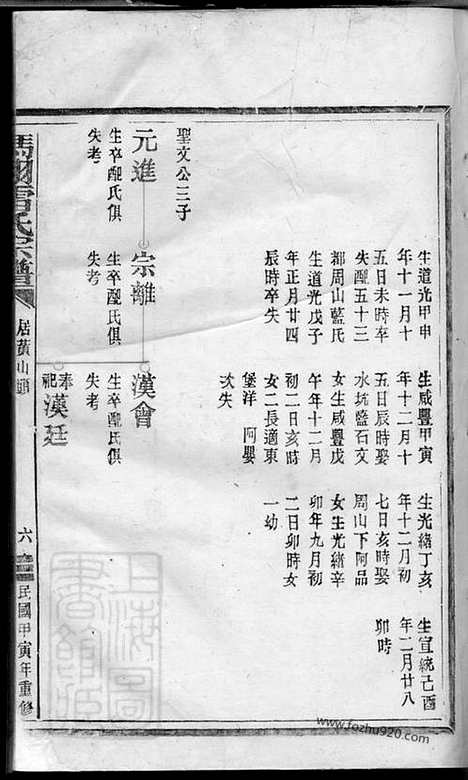 生道光甲申
年十一月十
五日未時卒
失醖五十三
都周山藍氏
生道光戊子
年正月廿四
辰時卒失
生咸豐甲寅
年十二月十
五日辰時娶
水坑藍石文
女生咸豐戊
午年十二月
初二日亥時
女二長適東
堡洋 阿嬰
次失
生光緒丁亥
年十二月初
七日亥時娶
周山下阿品
女生光緒辛
卯年九月初
二日卯時女
一幼
生宣統己酉
年二月廿八
卯時
聖文公三子
元進
生卒醖氏俱
失考
宗離
生卒醖氏俱
失考
漢會
生卒醖氏俱
失考
奉祀
漢廷
氏宗譜
居黃山頭
六
民國甲寅年重修
上海圖書館藏
www.fozhu920.com